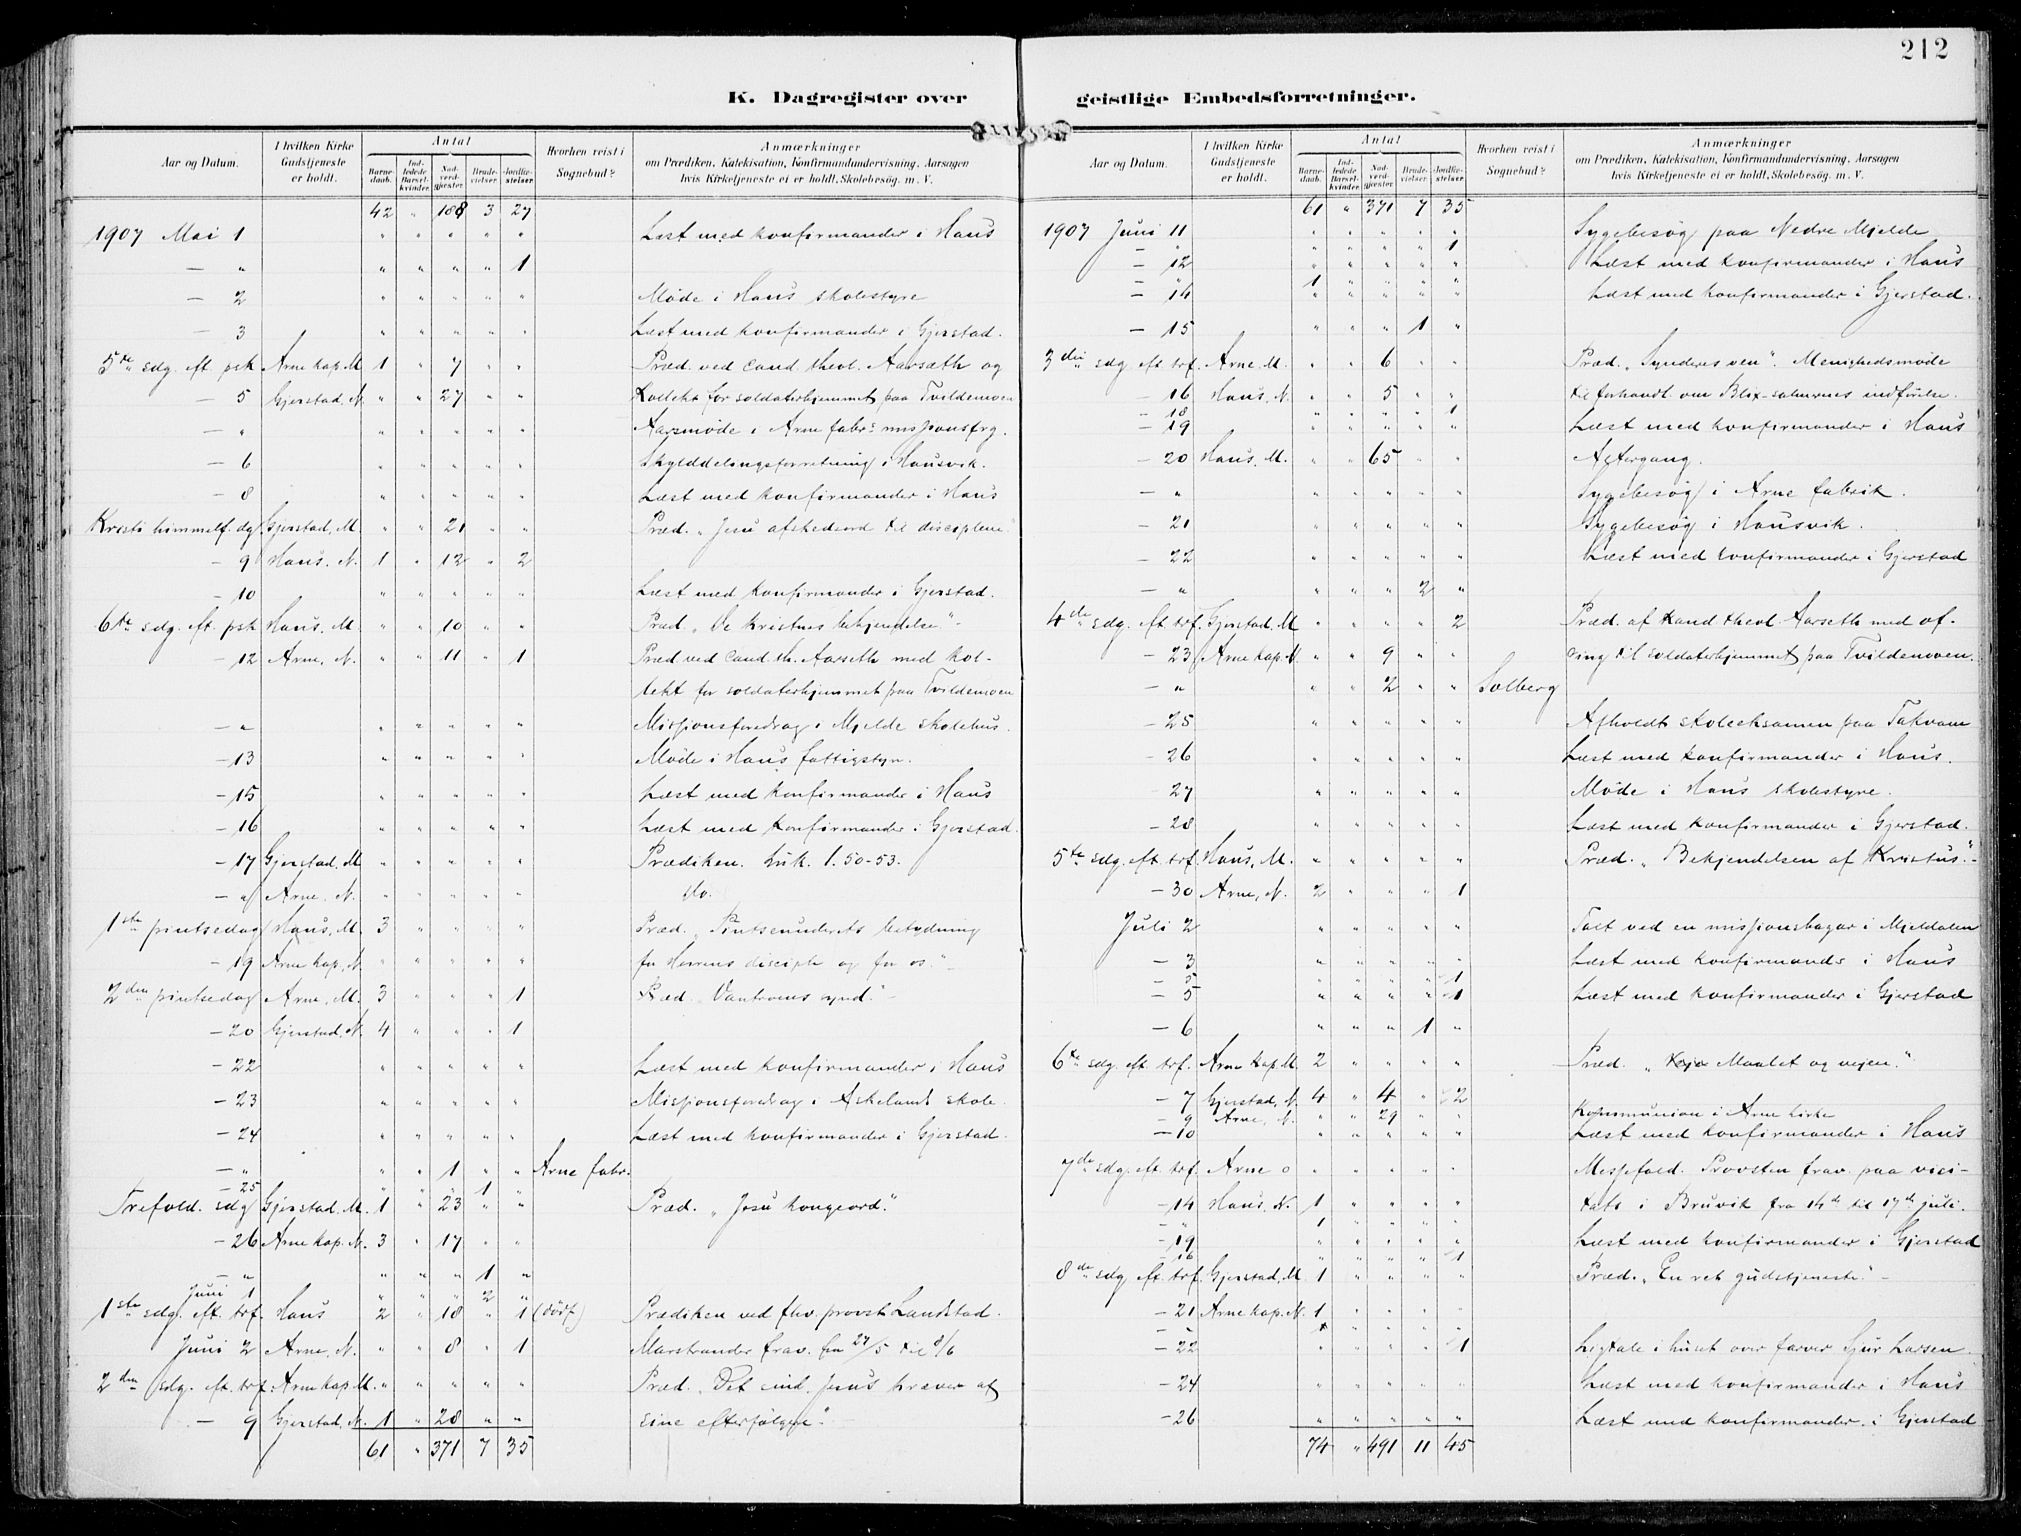 212
K. Dagregister over
Aar og Datum. I hvilken Kirke Gudstjeneste er holdt. Antal Barnedaab. Indledede Barselkvinder. Nadverdgjester Brudevielser Jordfæstelser Hvorhen reist i Sognebud? Anmærkninger om Prædiken, Katekisation, Konfirmandundervisning, Aarsagen hvis Kirketjeneste ei er holdt, Skolebesøg. m. V.
42 " 188 3 27
1907 Mai 1 " " " " " Læst med konfirmander i Haus
— " " " " " 1
— 2 " " " " " Møde i Haus skolestyre
— 3 " " " " " Læst med konfirmander i Gjerstad.
5te sdg. eft. psk Arne kap. M 1 " 7 " " Præd. ved cand. theol. Aarseth og
— 5 Gjerstad, N. " " 27 " " kollekt for soldaterhjemmet paa Tvildemoen
— " " " " " " Aarsmøde i Arne fabr's missionsfrg.
— 6 " " " " " Skylddelingsforretning i Hausvik.
— 8 " " " " " Læst med konfirmander i Haus
Kristi himmelf. dg. Gjerstad, M. " " 21 " " Præd. "Jesu afskedsord til disciplene"
— 9 Haus. N. 1 " 12 " 2
— 10 " " " " " Læst med konfirmander i Gjerstad.
6te sdg. eft. psk Haus. M. " " 10 " " Præd. "De kristnes bekjendelse" -
— 12 Arne, N. " " 11 " 1 Præd ved cand. th. Aarseth med kol-
lekt for soldaterhjemmet paa Tvildemoen
— " " " " " " Missionsforedrag i Mjelde skolehus.
— 13 " " " " " Møde i Haus fattigstyre.
— 15 " " " " " Læst med konfirmander i Haus
— 16 " " " " " Læst med konfirmander i Gjerstad.
— 17 Gjerstad, M " " " " " Prædiken. Luk. 1. 50-53.
— " Arne, N. " " " " " do.
1ste pintsedag Haus, M. 3 " " " " Præd. "Pintseunderets betydning
— 19 Arne kap. N. " " " " " for Herrens disciple og for os." -
2den pintsedag Arne, M. 3 " " " 1 Præd. "Vantroens synd." -
— 20 Gjerstad, N. 4 " " " 1
— 22 " " " " " Læst med konfirmander i Haus
— 23 " " " " " Missionsforedrag i Askelands skole.
— 24 " " " " " Læst med konfirmander i Gjerstad.
— " " " 1 " " Arne fabr.
— 25 " " " 1 "
Trefold. sdg Gjerstad. M. 1 " 23 " " Præd. "Jesu kongeord."
— 26 Arne kap. N. 3 " 17 " "
— " " " " 1 "
Juni 1 " " " 2 "
1ste sdg. eft. trf. Haus 2 " 18 " 1 (dødf.) Prædiken ved fhv. provst Landstad.
Juni 2 Arne, N. " " 8 " 1 Marstrander frav. fra 27/5 til 8/6
2den sdg. eft. trf. Arne kap. M. " " " " " Præd. "Det eind. Jesus kræver af
— 9 Gjerstad, N. 1 " 28 " " sine efterfølgere." -
61 " 371 7 35
geistlige Embedsforretninger.
Aar og Datum. I hvilken Kirke Gudstjeneste er holdt. Antal Barnedaab. Indledede Barselkvinder. Nadverdgjester Brudevielser Jordfæstelser Hvorhen reist i Sognebud? Anmærkninger om Prædiken, Katekisation, Konfirmandundervisning, Aarsagen hvis Kirketjeneste ei er holdt, Skolebesøg. m. V.
61 " 371 7 35
1907 Juni 11 " " " " " Sygebesøg paa Nedre Mjelde
— " " " " " 1
— 12 " " " " " Læst med konfirmander i Haus
— " 1 " " " "
— 14 " " " " " Læst med konfirmander i Gjerstad.
— 15 " " " 1 "
3die sdg eft. trf. Arne. M. " " 6 " " Præd. "Synderes ven". Menighedsmøde
— 16 Haus, N. " " 5 " " til forhandl. om Blix-salmernes indførelse.
— 18 " " " " 1
— 19 " " " " " Læst med konfirmander i Haus
— 20 Haus, M. " " 65 " " Altergang.
— " " " " " " Sygebesøg i Arne fabrik.
— 21 " " " " " Sygebesøg i Hausvik.
— 22 " " " " " Læst med konfirmander i Gjerstad
— " " " " 2 "
4de sdg. eft. trf. Gjerstad, M " " " " 2 Præd. af kand theol. Aarseth med of-
— 23 Arne kap. N. " " 9 " " ring til soldaterhjemmet paa Tvildemoen.
— " " " 2 " " Solberg
— 25 " " " " " Afholdt skoleeksamen paa Takvam
— 26 " " " " " Læst med konfirmander i Haus.
— 27 " " " " " Møde i Haus skolestyre.
— 28 " " " " " Læst med konfirmander i Gjerstad.
5te sdg. eft. trf. Haus, M. " " " " " Præd. "Bekjendelsen af Kristus." -
— 30 Arne, N. 2 " " " 1
Juli 2 " " " " " Talt ved en missionsbazar i Mjeldalen
— 3 " " " " " Læst med konfirmander i Haus
— 5 " " " " 1
— 5 " " " " 1 Læst med konfirmander i Gjerstad
— 6 " " " 1 "
6te sdg. eft. trf. Arne kap. M. 2 " " " " Præd. "Maalet og veien."
— 7 Gjerstad, N. 4 " 4 " 2
— 9 Arne, N. " " 29 " " Kommunion i Arne kirke
— 10 " " " " " Læst med konfirmander i Haus
7de sdg. eft. trf. Arne o " " " " " Messefald. Provsten frav. paa visi-
— 14 Haus, N. 1 " " " " tats i Bruvik fra 14de til 17de juli.
— " 1 " " " "
— 19 " " " " " Læst med konfirmander i Gjerstad
— 16 " " " " 1
8de sdg. eft. trf. Gjerstad, M 1 " " " " Præd. "En ret gudstjeneste." -
— 21 Arne kap. N. 1 " " " "
— 22 " " " " 1 Ligtale i huset over farver Sjur Larsen.
— 24 " " " " " Læst med konfirmander i Haus
— 26 " " " " " Læst med konfirmander i Gjerstad
74 " 491 11 45